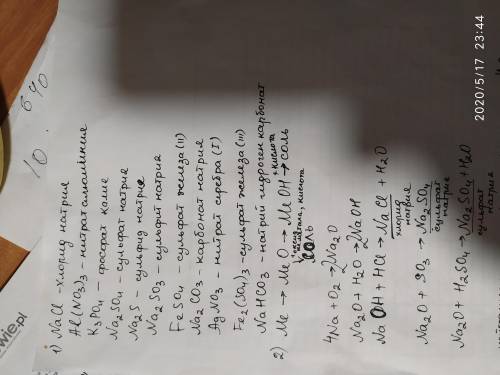 1) NaCl - хлорид натрия
Al(NO3)3 - нитрат алюминия
K3PO4 - фосфат калие
Na2SO4 - сульфат натрия
Na2S - сульфид натрие
Na2SO3 - сульфит натрия
FeSO4 - сульфат железа (II)
Na2CO3 - карбонат натрия
AgNO3 - нитрат серебра (I)
Fe2(SO4)3 - сульфат железа (III)
NaHCO3 - натрий гидроген карбонат
2) Me → MeO → MeOH + кислота → соль
кислота
соль
4Na + O2 → 2Na2O
Na2O + H2O → 2NaOH
NaOH + HCl → NaCl + H2O
хлорид натрия
Na2O + SO3 → Na2SO4
сульфат натрия
Na2O + H2SO4 → Na2SO4 + H2O
сульфат натрия
10
wie.pl
2020/5/17 23:44